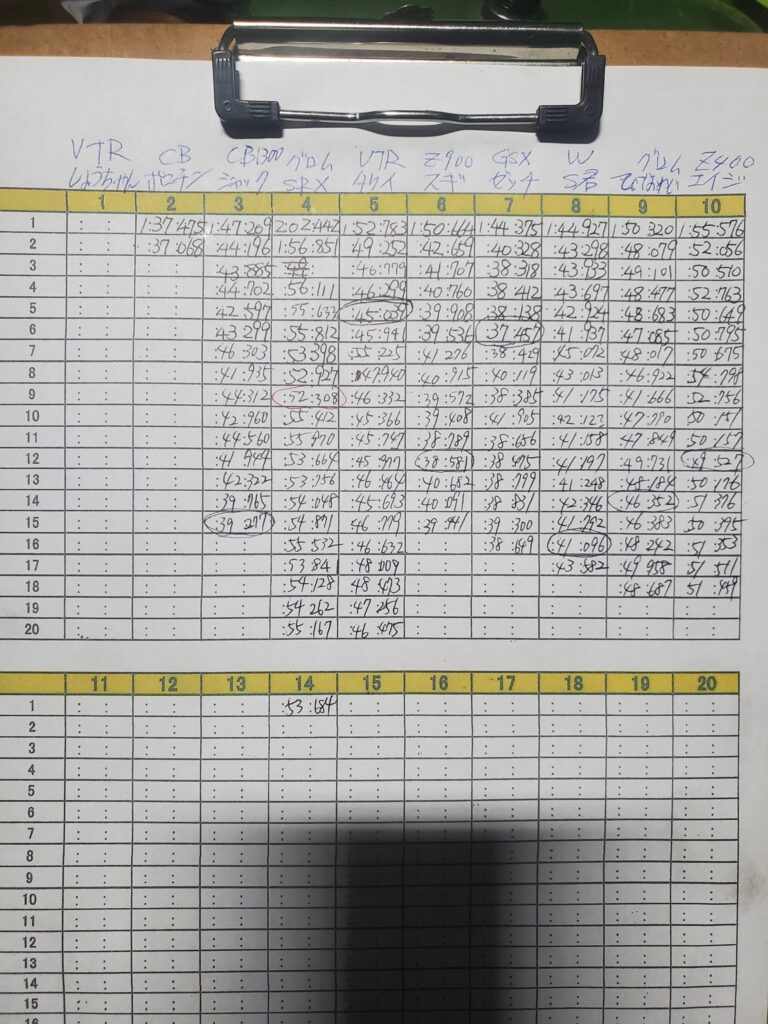 VTR CB CB1300 グロム VTR Z900 GSX W グロム Z400
しょうちゃん ジャック SRX スギ ゼッチ S君 エイジ
1 2 3 4 5 6 7 8 9 10
1 : : 1:37:475 1:47:209 2:02:442 1:52:783 1:50:664 1:44:375 1:44:927 1:50:320 1:55:576
2 : : :37:068 :44:196 1:56:851 :49:252 :42:659 :40:328 :43:298 :48:079 :52:056
3 : : : : 43:885 :46:779 :41:767 :38:318 :43:933 :49:101 :50:510
4 : : : : :44:702 :56:111 :46:299 :40:760 :38:412 :43:697 :48:477 :52:763
5 : : : : 42:597 :55:633 :45:039 :39:908 :38:138 :42:924 :48:683 :50:649
6 : : : : 43:299 :55:812 :45:941 :39:536 :37:457 :41:937 :47:085 :50:795
7 : : : : :46:303 :53:398 :55:225 :41:276 :45:072 :48:017 :50:675
8 : : : : :41:935 :52:927 :47:940 :40:915 :40:119 :43:013 :46:922 :54:798
9 : : : : :44:312 :52:308 :46:332 :39:572 :38:385 :41:175 :41:666 :52:756
10 : : : : :42:960 :55:412 :45:366 :39:408 :41:905 :47:790 :50:151
11 : : : : :44:560 :55:970 :45:747 :38:789 :38:656 :41:158 :47:849 :50:157
12 : : : : :41:944 :53:664 :45:977 :38:581 :38:475 :41:197 :49:731 :49:527
13 : : : : :42:322 :53:756 :46:464 :40:682 :38:799 :41:248 :48:184 :50:176
14 : : : : :39:765 :54:048 :45:693 :40:091 :38:831 :42:346 :46:352 :51:376
15 : : : : :39:277 :54:871 :46:779 :39:441 :39:300 :41:792 :46:383 :50:395
16 : : : : : : :55:532 :46:632 : : :38:649 :41:096 :48:242 :51:353
17 : : : : : : :53:841 :48:009 : : : : :43:582 :49:958 :51:511
18 : : : : : : :54:128 :48:473 : : : : : : :48:687
19 : : : : : : :54:262 :47:256 : : : : : : : : : :
20 : : : : : : :55:167 :46:475 : : : : : : : : : :
11 12 13 14 15 16 17 18 19 20
1 : : : : : : :53:684 : : : : : : : : : : : :
2 : : : : : : : : : : : : : : : : : : : :
3 : : : : : : : : : : : : : : : : : : : :
4 : : : : : : : : : : : : : : : : : : : :
5 : : : : : : : : : : : : : : : : : : : :
6 : : : : : : : : : : : : : : : : : : : :
7 : : : : : : : : : : : : : : : : : : : :
8 : : : : : : : : : : : : : : : : : : : :
9 : : : : : : : : : : : : : : : : : : : :
10 : : : : : : : : : : : : : : : : : : : :
11 : : : : : : : : : : : : : : : : : : : :
12 : : : : : : : : : : : : : : : : : : : :
13 : : : : : : : : : : : : : : : : : : : :
14 : : : : : : : : : : : : : : : : : : : :
15 : : : : : : : : : : : : : : : : : : : :